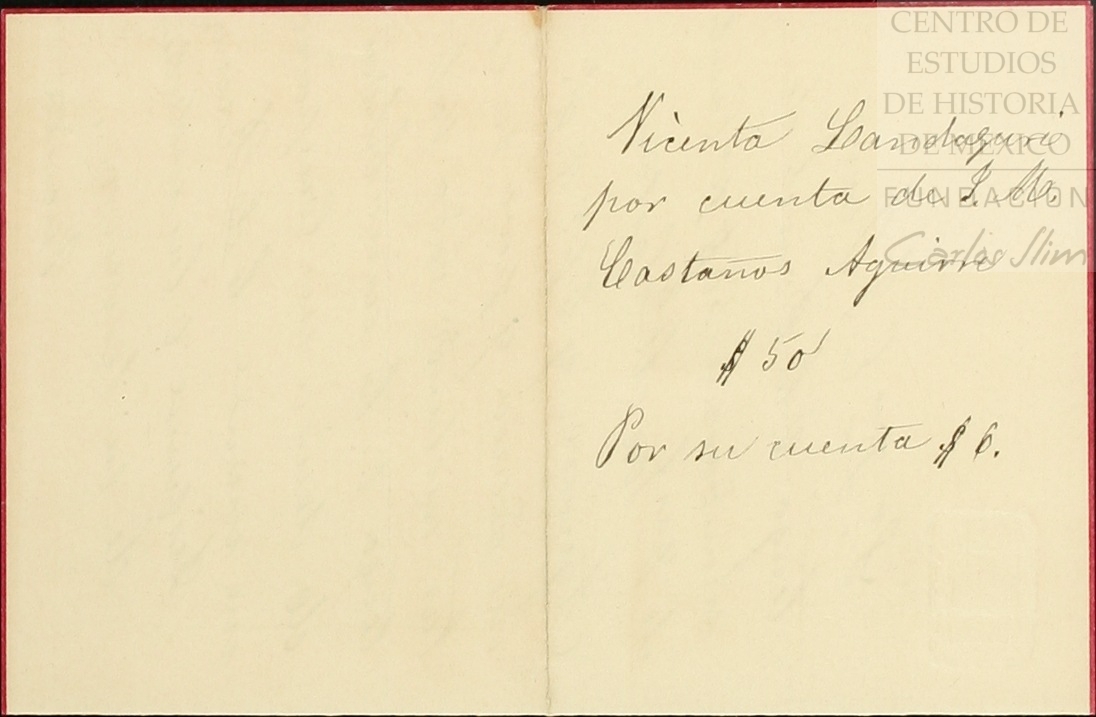 CENTRO DE
ESTUDIOS
DE HISTORIA
DE MÉXICO
FUNDACIÓN
Carlos Slim
Vicenta Landazuri
por cuenta de J. M.
Castaños Aguirre
$ 50
Por su cuenta $ 6.